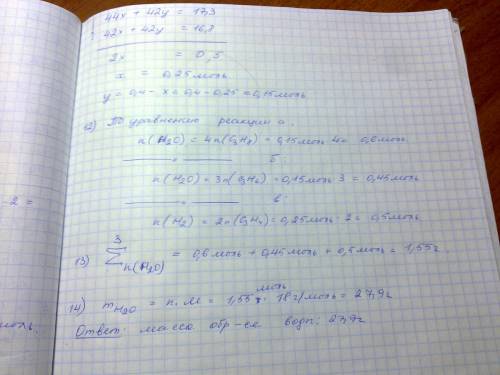 44x + 42y = 17,3
42x + 42y = 16,8
2x = 0,5
x = 0,25моль
y = 0,4 - x = 0,4 - 0,25 = 0,15моль
12) По уравнению реакции а:
n(H2O) = 4n(C3H8) = 0,15моль 4 = 0,6моль
—— " —— б:
n(H2O) = 3n(C3H6) = 0,15моль 3 = 0,45моль
—— " —— в:
n(H2) = 2n(C3H4) = 0,25моль · 2 = 0,5моль
-2 =
13) 3 Σ n(H2O) = 0,6моль + 0,45моль + 0,5моль = 1,55г
14) mH2O = n · M = 1,55 моль · 18г/моль = 27,9г
моль.
Ответ: масса обр-ся воды: 27,9г